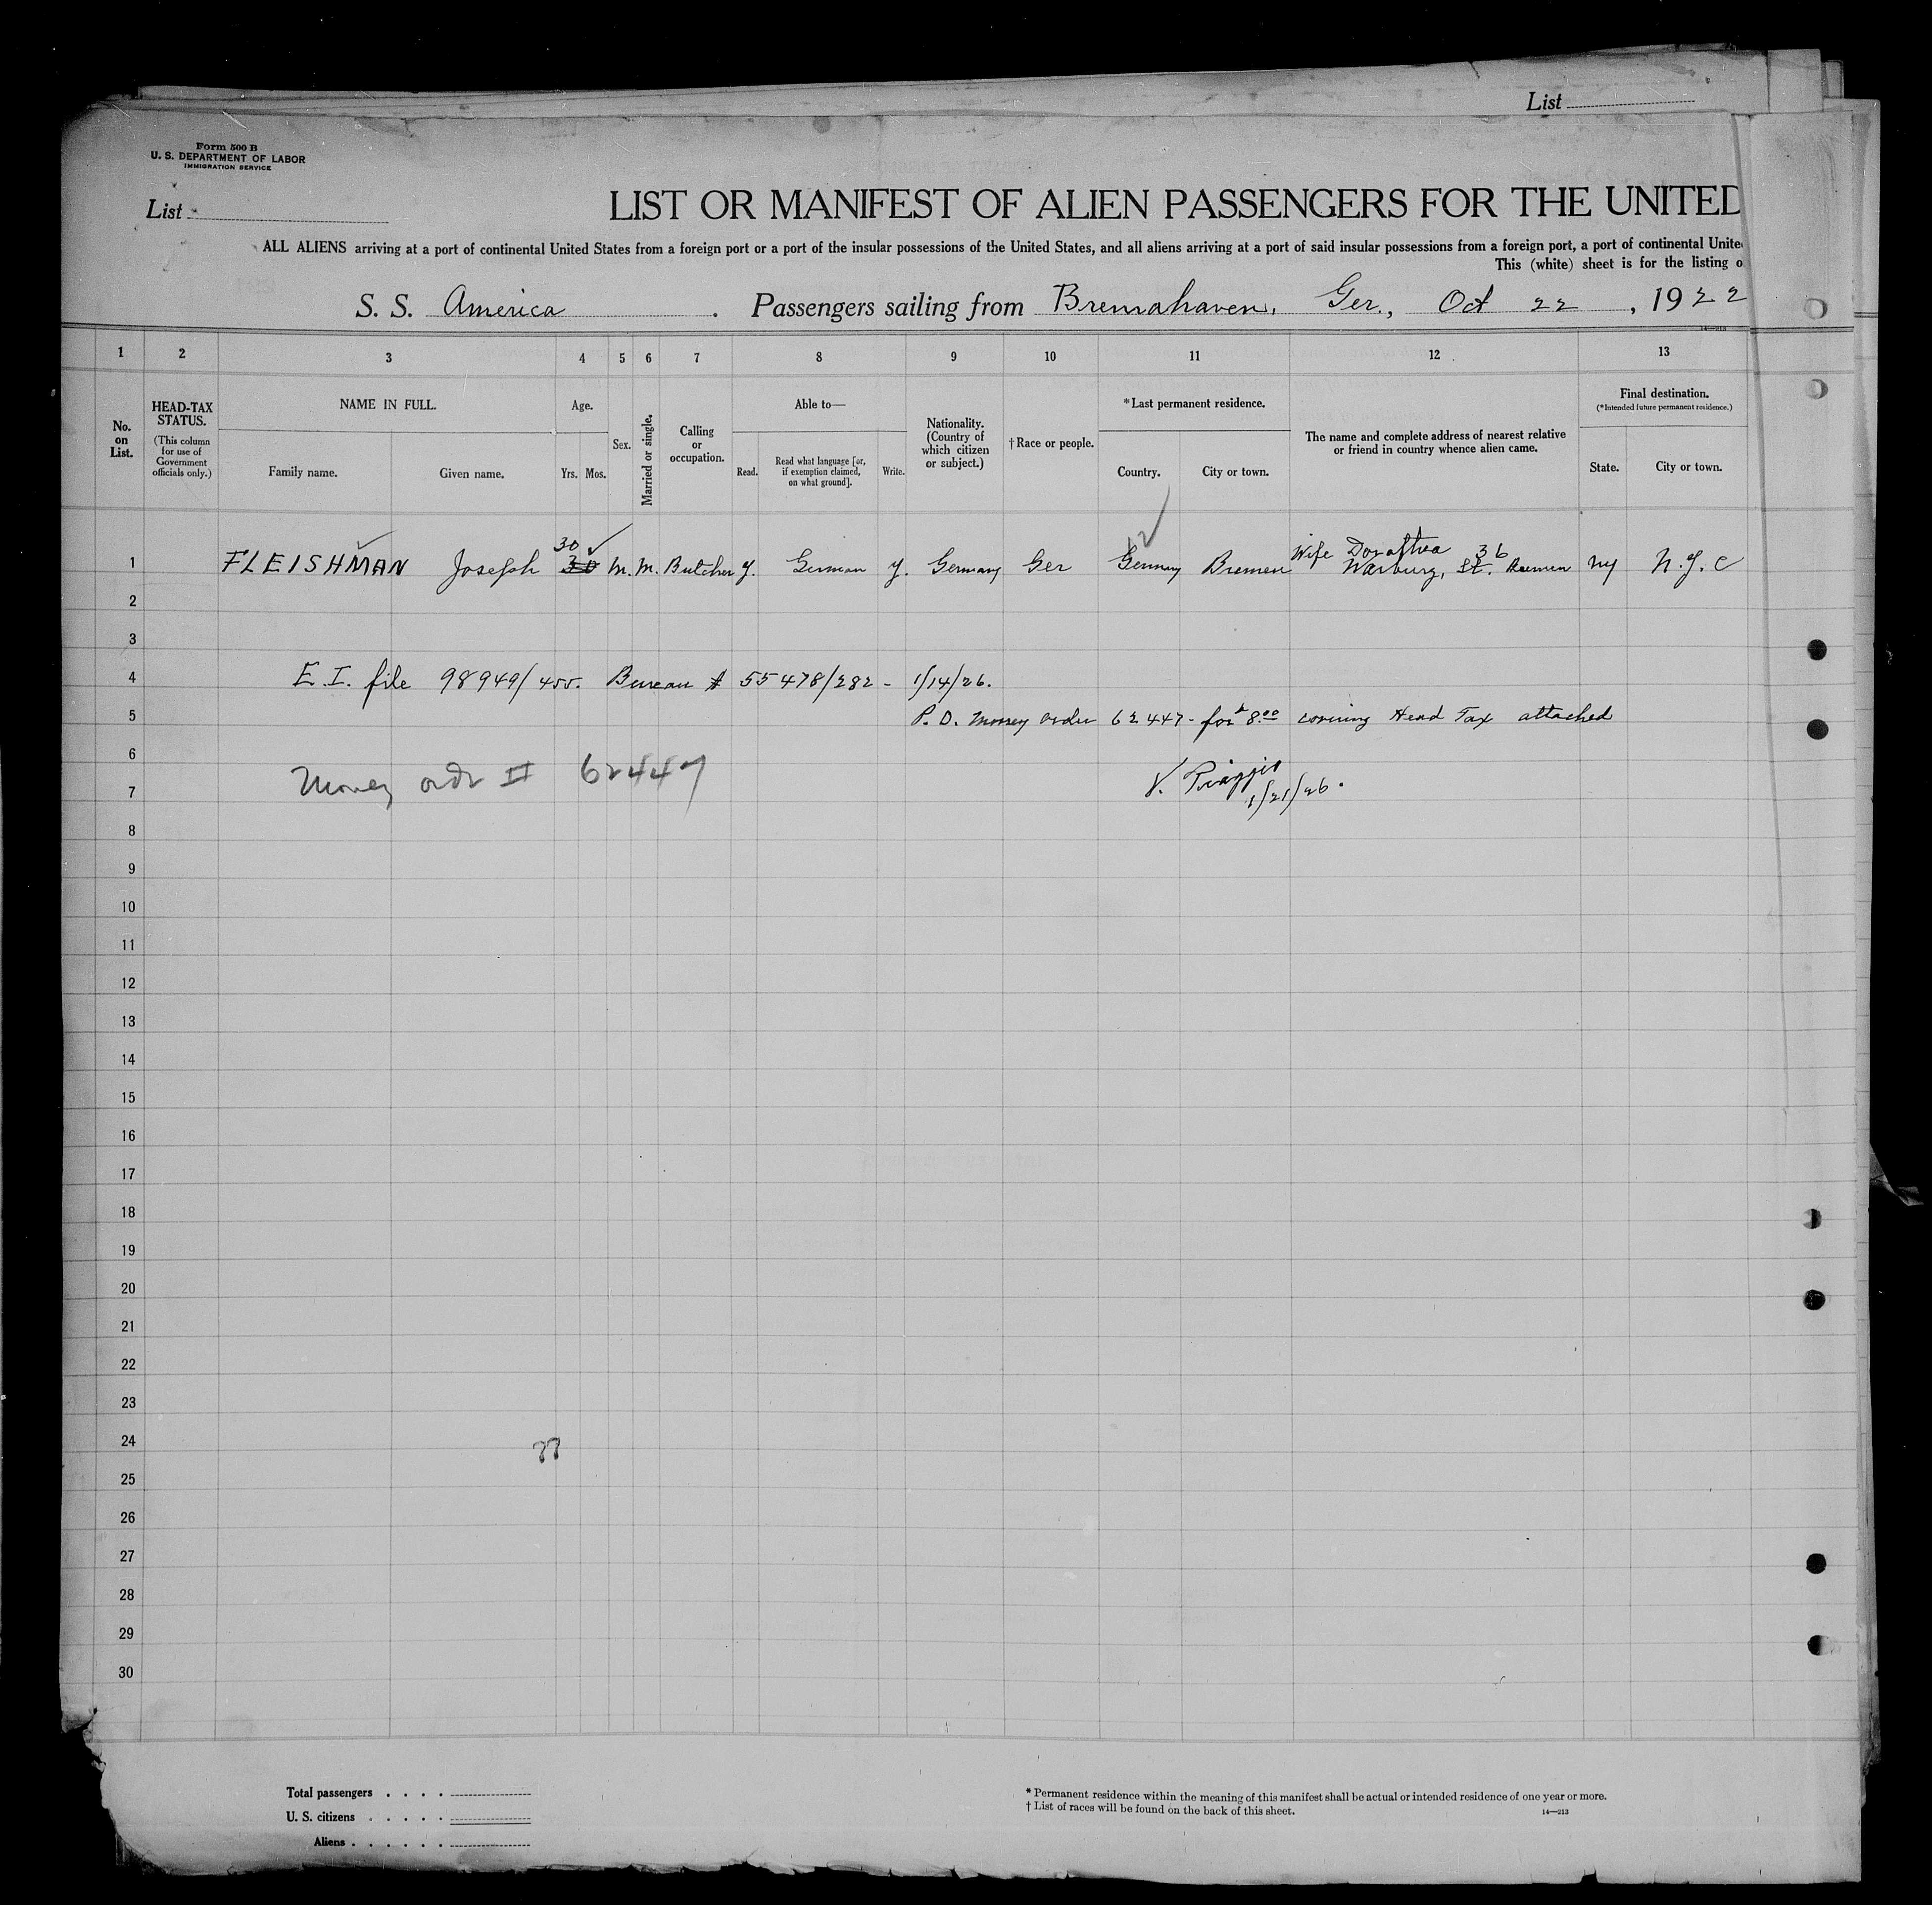 List
Form 500 B
U. S. DEPARTMENT OF LABOR
IMMIGRATION SERVICE
List
LIST OR MANIFEST OF ALIEN PASSENGERS FOR THE UNITED
ALL ALIENS arriving at a port of continental United States from a foreign port or a port of the insular possessions of the United States, and all aliens arriving at a port of said insular possessions from a foreign port, a port of continental Unite
This (white) sheet is for the listing o
S. S. America . Passengers sailing from Bremahaven, Ger., Oct 22, 1922
14—213
1 2 3 4 5 6 7 8 9 10 11 12 13
No. on List.
HEAD-TAX STATUS.
(This column for use of Government officials only.)
NAME IN FULL.
Family name. Given name.
Age.
Yrs. Mos.
Sex.
Married or single.
Calling or occupation.
Able to—
Read. Read what language [or, if exemption claimed, on what ground]. Write.
Nationality. (Country of which citizen or subject.)
†Race or people.
*Last permanent residence.
Country. City or town.
The name and complete address of nearest relative or friend in country whence alien came.
Final destination.
(*Intended future permanent residence.)
State. City or town.
30 Wife Dorothea 36
1 FLEISHMAN Joseph 30 M. M. Butcher Y. German Y. Germany Ger Germany Bremen Warburg, St. Bremen NY N.Y.C
2
3
4 E. I. file 98949/455. Bureau # 55478/282 - 1/14/26.
5 P. O. Money order 62447 - for $8.00 covering Head Tax attached
6
Money ordr # 62447 V. Piaggio
7 1/21/26.
8
9
10
11
12
13
14
15
16
17
18
19
20
21
22
23
24
77
25
26
27
28
29
30
Total passengers . . . .
U. S. citizens . . . . .
Aliens . . . . . .
* Permanent residence within the meaning of this manifest shall be actual or intended residence of one year or more.
† List of races will be found on the back of this sheet.
14—213